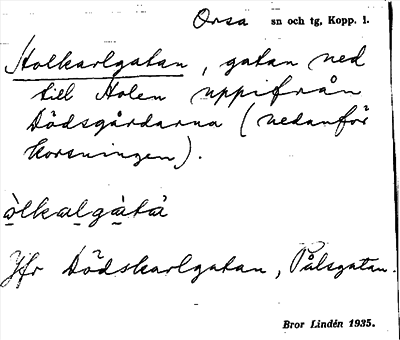 Orsa sn och tg, Kopp. l.
Holkarlgatan, gatan ned
till Holen uppifrån
Dödsgårdarna (nedanför
korsningen).
òlkalgàtả
Jfr Dödskarlgatan, Pålsgatan.
Bror Lindén 1935.